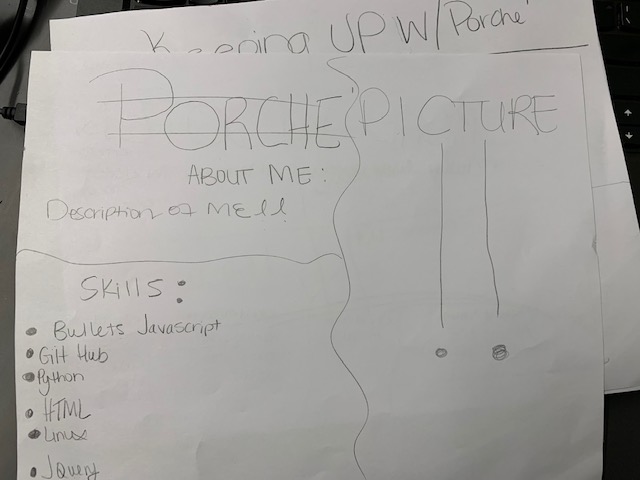 UP W/Porche'
PORCHE'
PICTURE
ABOUT ME:
Description of ME!!
Skills:
Bullets Javascript
Git Hub
Python
HTML
Linux
JQuery